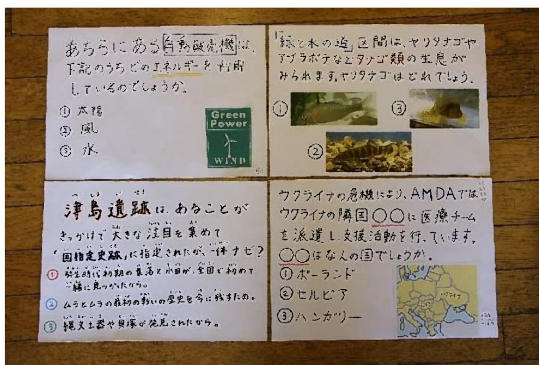 あちらにある自動販売機は、
下記のうちどのエネルギーを利用
しているのでしょうか。
① 太陽
② 風
③ 水
Green
Power
WIND
「緑と水の道」区間は、ヤリタナゴや
アブラボテなどタナゴ類の生息が
みられます。ヤリタナゴはどれでしょう。
①
③
②
津島遺跡は、あることが
きっかけで大きな注目を集めて
「国指定史跡」に指定されたが、一体ナゼ?
① 弥生時代初期の集落と水田が、全国で初めて
一緒に見つかったから。
② ムラとムラの最初の戦いの歴史を今に残すため。
③ 縄文土器や貝塚が発見されたから。
ウクライナの危機により、AMDAでは
ウクライナの隣国○○に医療チーム
を派遣し、支援活動を行っています。
○○はなんの国でしょうか。
① ポーランド
② セルビア
③ ハンガリー
ウクライナ